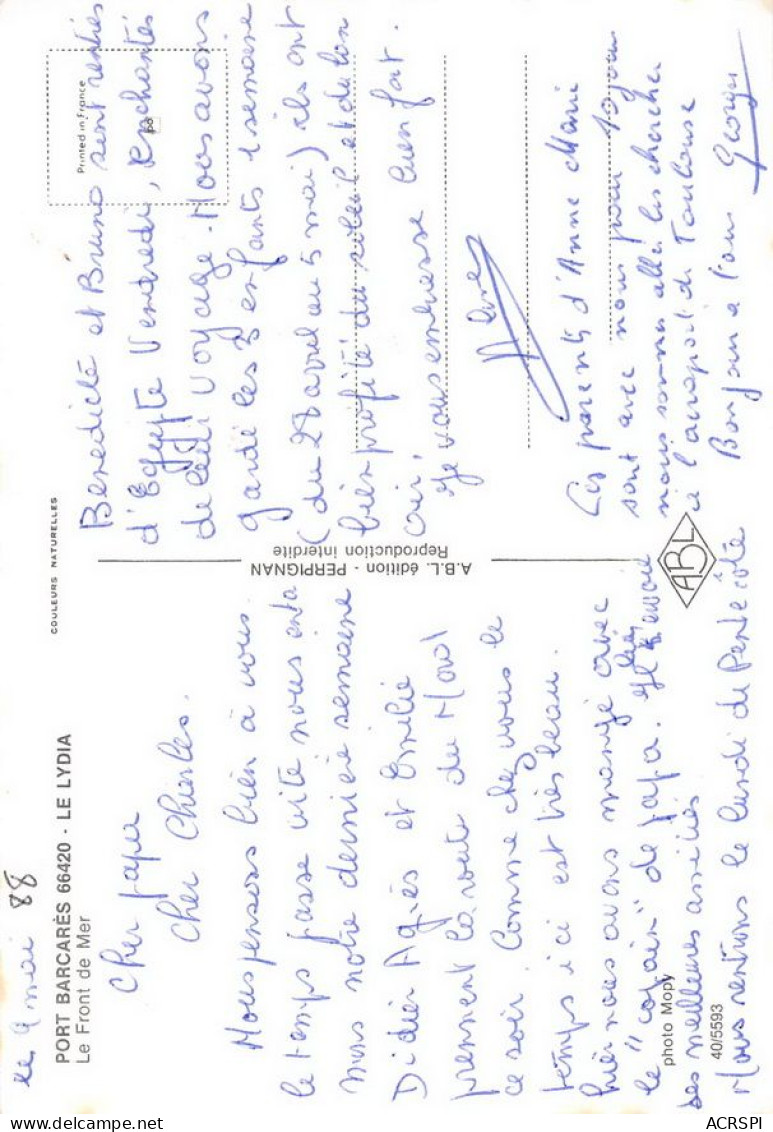 le 9 mai 88
PORT BARCARÈS 66420 - LE LYDIA
Le Front de Mer
Cher papa
Cher Charles.
Nous pensons bien à vous.
le temps passe vite nous
mais notre dernière semaine
Didier Agnès et Emilie
prennent la route du Nord
ce soir. Comme chez vous le
temps ici est très beau.
hier nous avons mangé avec
le "copain" de papa. Il envoie
ses meilleures amitiés
Nous rentrons le lundi de Pentecôte
photo Mopy
40/5593
COULEURS NATURELLES
A.B.L. édition - PERPIGNAN
Reproduction interdite
ABL
Printed in France
Benedicte et Bruno sont rentrés
d'Egypte Vendredi, enchantés
de leur voyage. Nous avons
gardé les 3 enfants 1 semaine
(du 28 avril au 5 mai) ils ont
bien profité du soleil et du bon
air.
Je vous embrasse bien fort.
Les parents d'Anne Marie
sont avec nous pour 10 jours
nous sommes allés les chercher
à l'aeroport de Toulouse
Bonjour à tous
Georges
ACRSPI